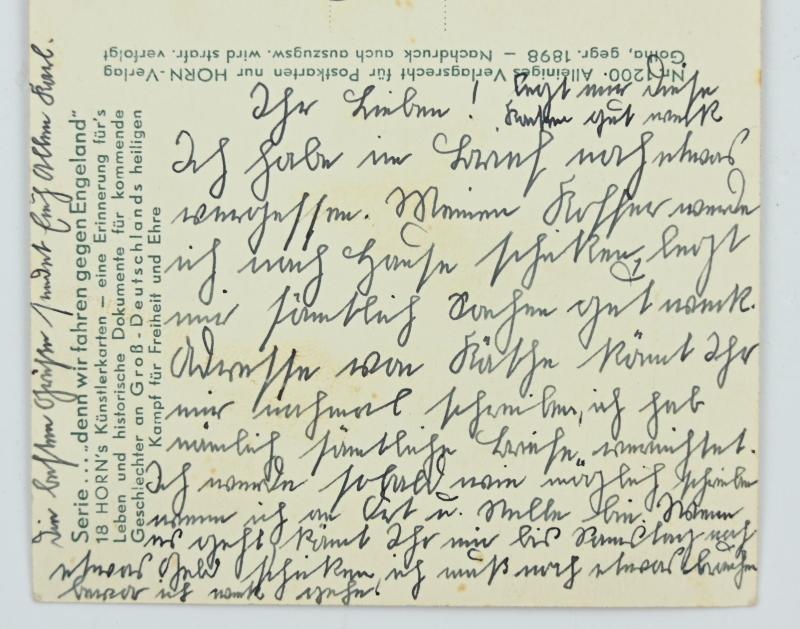 Nr. 1200. Alleiniges Verlagsrecht für Postkarten nur HORN-Verlag
Gotha, gegr. 1898 – Nachdruck auch auszugsw. wird strafr. verfolgt
Serie . . . „denn wir fahren gegen Engeland"
18 HORN's Künstlerkarten – eine Erinnerung für's
Leben und historische Dokumente für kommende
Geschlechter an Groß-Deutschlands heiligen
Kampf für Freiheit und Ehre
Ihr Lieben! legt mir diese
Karten gut weck
Ich habe im Brief noch etwas
vergessen. Meinen Koffer werde
ich nach Hause schicken, legt
mir sämtlich Sachen gut weck.
Adresse von Käthe könnt Ihr
mir nochmal schreiben, ich hab
nämlich sämtliche Briefe vernichtet.
Ich werde sobald wie möglich schreiben
wenn ich an Ort u. Stelle bin. Wenn
es geht, könnt Ihr mir bis Samstag noch
etwas Geld schicken, ich muß noch etwas brauchen
bevor ich weck gehe.
Die besten Grüße sendet Euch Allen Karl.